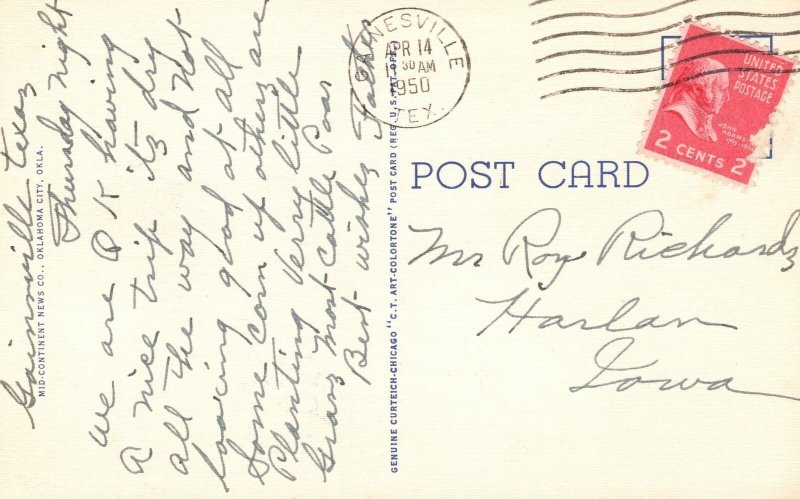 Gainsville texas
Thursday night
We are O K having
a nice trip its dry
all the way and not
looking good at all
Some corn up others are
Planting Very little
Grass most cattle Poor
Best wishes
MID-CONTINENT NEWS CO., OKLAHOMA CITY, OKLA.
GENUINE CURTEICH-CHICAGO "C.T. ART-COLORTONE" POST CARD (REG. U.S. PAT. OFF.)
GAINESVILLE
APR 14
30 AM
1950
TEX.
UNITED
STATES
POSTAGE
JOHN
ADAMS
2 CENTS 2
POST CARD
Mr Roy Richards
Harlan
Iowa